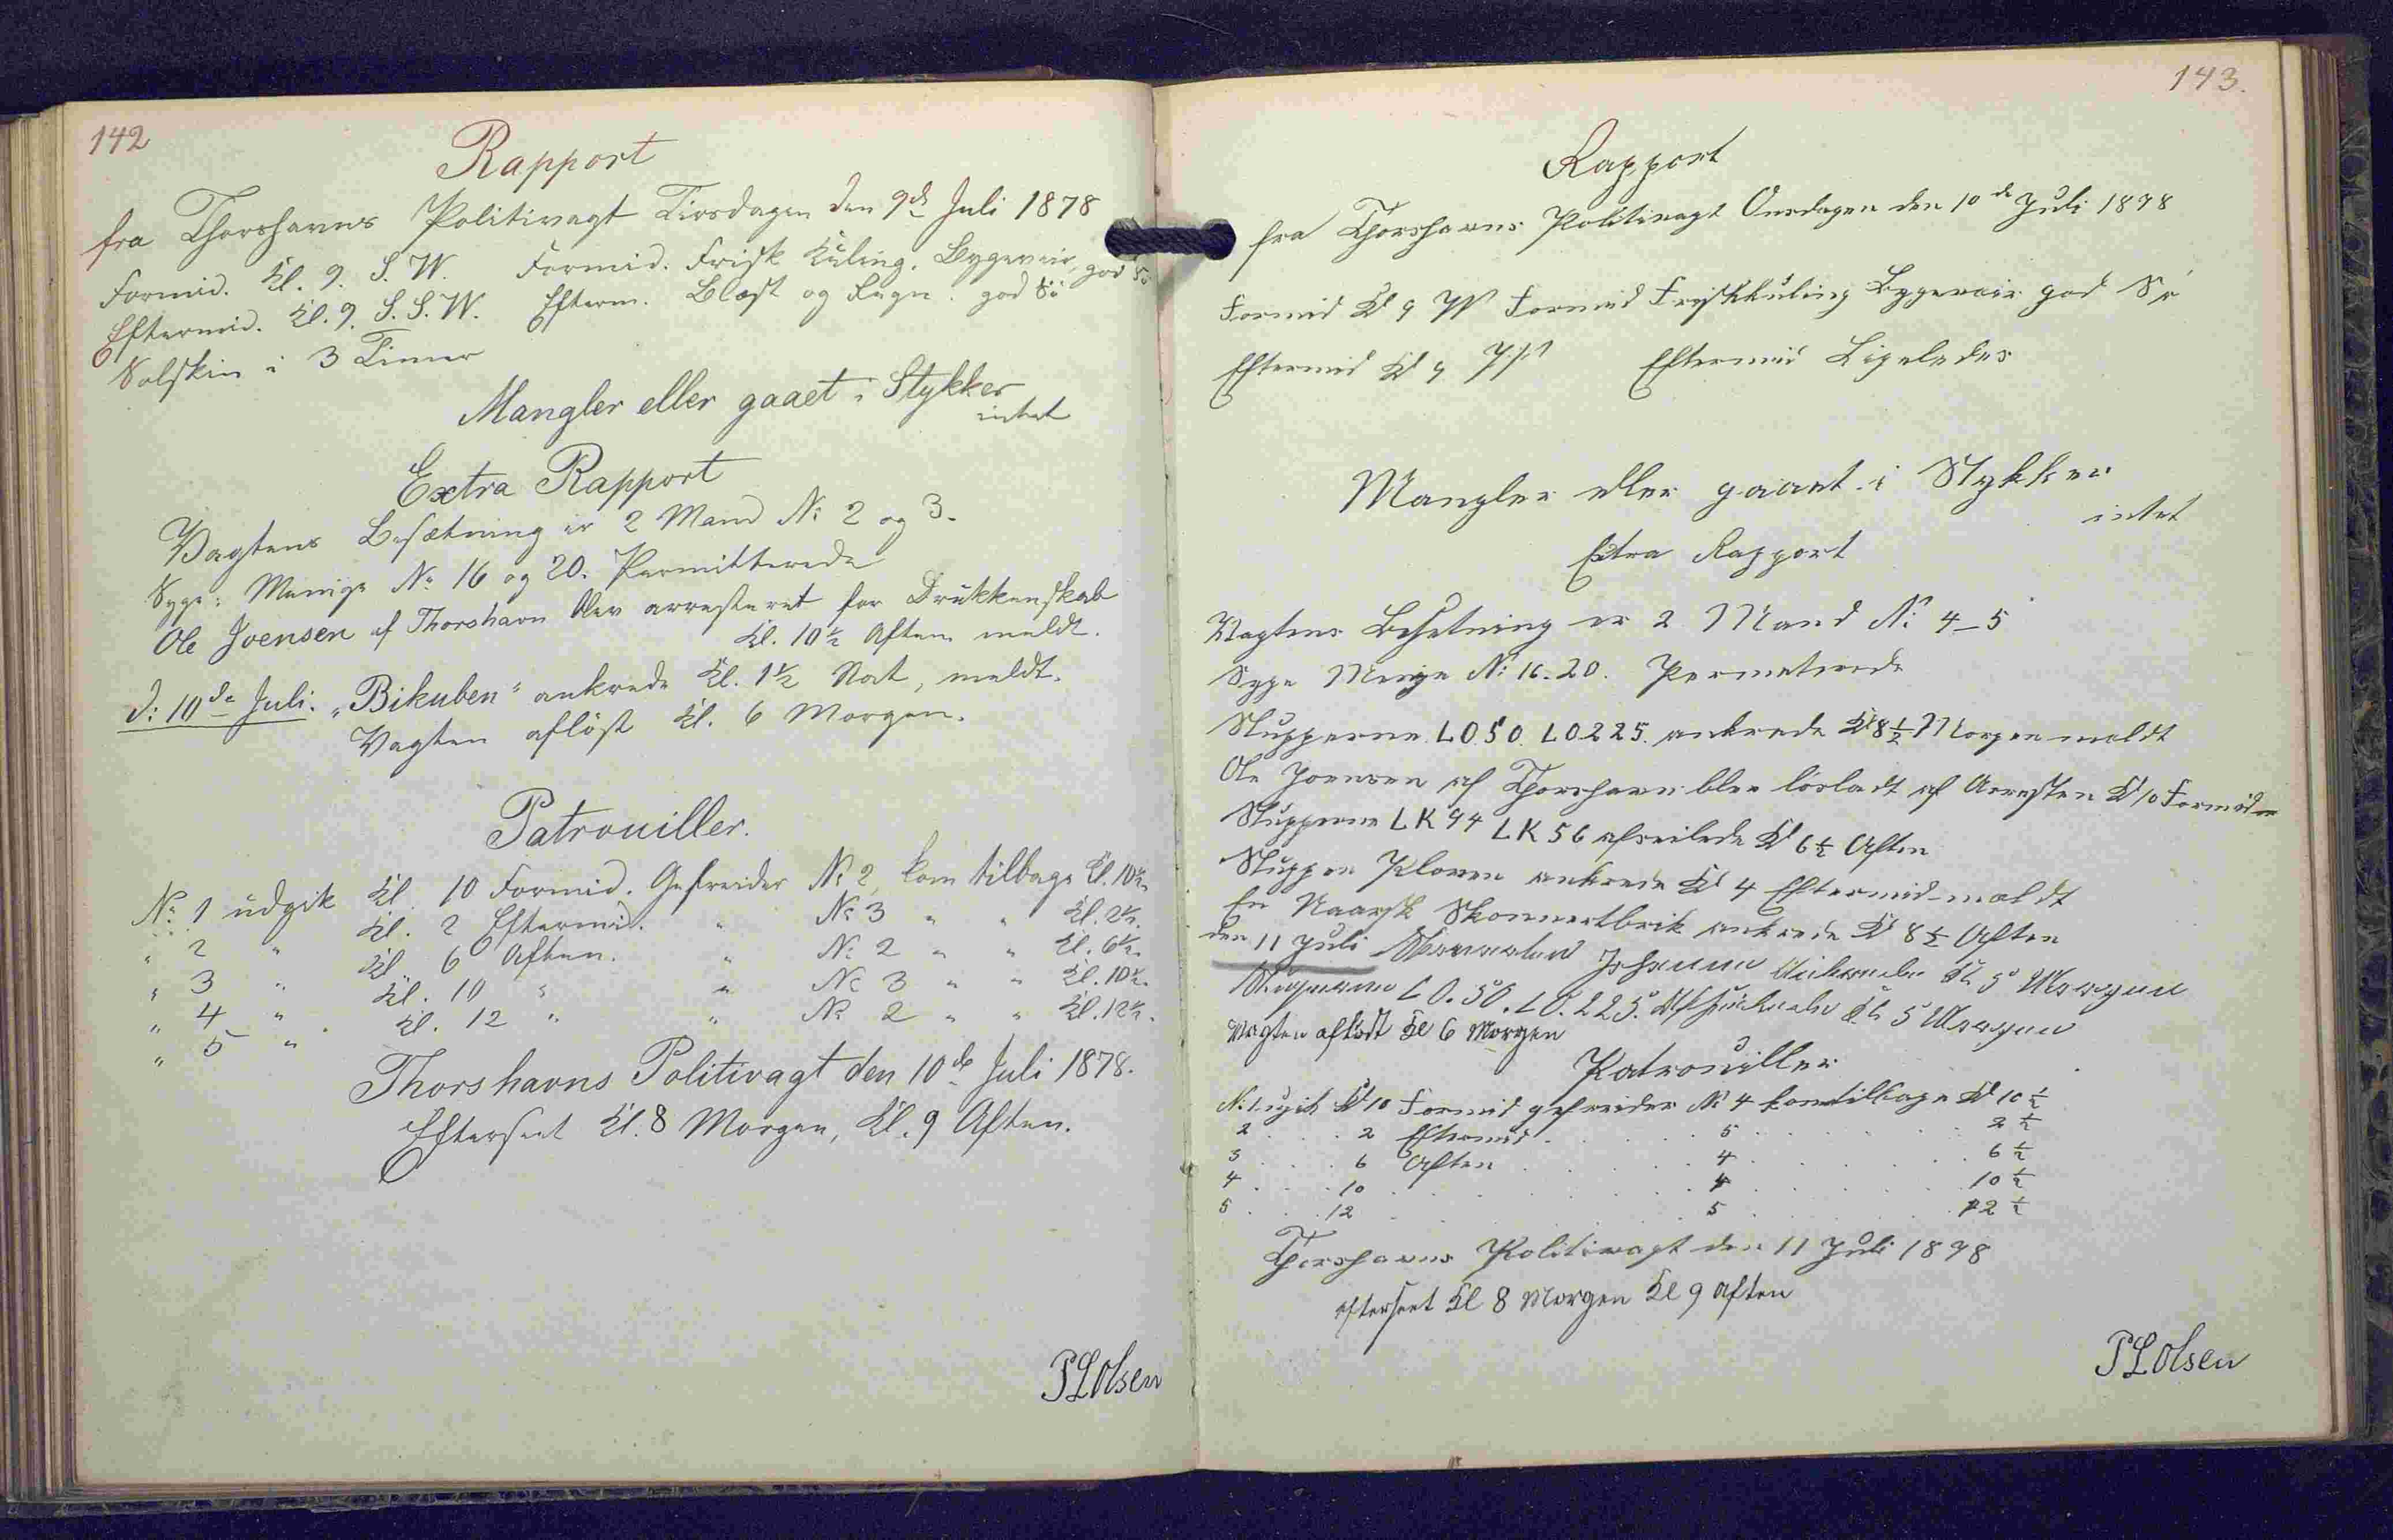 142
Rapport
fra Thorshavns Politivagt Tirsdagen den 9de Juli 1878
Formid. Kl. 9. S. W. Formid. Frisk Kuling. Bygeveir, god Si
Eftermid. Kl. 9. S. S. W. Efterm. Blæst og Regn. god Si
Solskin i 3 Timer
Mangler eller gaaet i Stykker
intet
Extra Rapport
Vagtens Besætning er 2 Mand No 2 og 3.
Syge: Menige No 16 og 20. Permitterede
Ole Joensen af Thorshavn blev arresteret for Drukkenskab
Kl. 10½ Aften meldt.
D: 10de Juli. „Bikuben" ankrede Kl. 1½ Nat, meldt.
Vagten afløst Kl. 6 Morgen.
Patrouiller.
No. 1 udgik Kl. 10 Formid. Gefreider No 2, kom tilbage Kl. 10½
" 2 " Kl. 2 Eftermid. " No 3 " " Kl. 2½.
" 3 " Kl. 6 Aften. " No 2 " " Kl. 6½.
" 4 " Kl. 10 " " No 3 " " Kl. 10½.
" 5 " Kl. 12 " " No 2 " " Kl. 12½.
Thorshavns Politivagt den 10de Juli 1878.
Efterseet Kl. 8 Morgen, Kl. 9 Aften.
PLOlsen
143.
Rapport
fra Thorshavns Politivagt Onsdagen den 10de Juli 1878
Formid Kl 9 W Formid Friskkuling Bygeveir god Si
Eftermid Kl 9 Eftermid Ligeledes
Mangler eller gaaet i Stykker
intet
Extra Rapport
Vagtens Besetning er 2 Mand No 4_5
Syge Menige No 16-20. Permeterede
Slupperne LO.50. LO225. ankrede Kl 8½ Morgen meldt
Ole Joensen af Thorshavn blev løsladt af Arresten Kl 10 Formid
Slupperne LK44 LK56 afseilede Kl 6½ Aften
Sluppen ankrede Kl 4 Eftermid meldt
En Naarsk Skonnertbrik ankrede Kl 8½ Aften
den 11 Juli Johanne Ankrede Kl 5 Morgen
Slupperne LO.50. LO.225. Kl 5 Morgen
Vagten afløst Kl 6 Morgen
Patrouiller
No 1 ugik Kl 10 Formid gefreider No 4 kom tilbage Kl 10½
2 . . . 2 Eftermid . . . 5 . . . 2½
3 . . . 6 Aften . . . 4 . . . 6½
4 . . . 10 . . . 4 . . . 10½
5 . . . 12 . . . 5 . . . 12½
Thorshavns Politivagt den 11 Juli 1878
efterseet Kl 8 Morgen Kl 9 Aften
PLOlsen